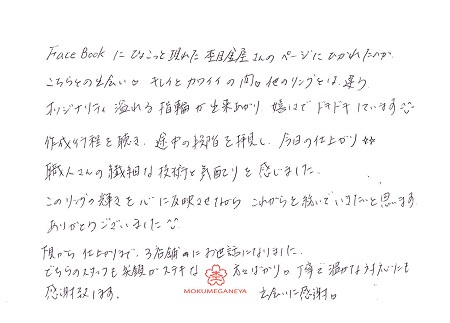 Face Book にひょこっと現れた杢目金屋さんのページにひかれたのが
こちらとの出会い。キレイとカワイイの間。他のリングとは、違う
オリジナリティ溢れる指輪が出来あがり 嬉しさで ドキドキしています
作成行程を聴き、途中の段階を拝見し、今日の仕上がり
職人さんの繊細な技術と気配りを感じました。
このリングの輝きを心に反映させながら これからを紡いでいきたいと思います
ありがとうございました
から 仕上がりまで、3店舗 にお世話になりました。
どちらのスタッフも笑顔がステキな 方ばかり。丁寧で温かな対応にも
感謝致します。 出会いに感謝。
MOKUMEGANEYA